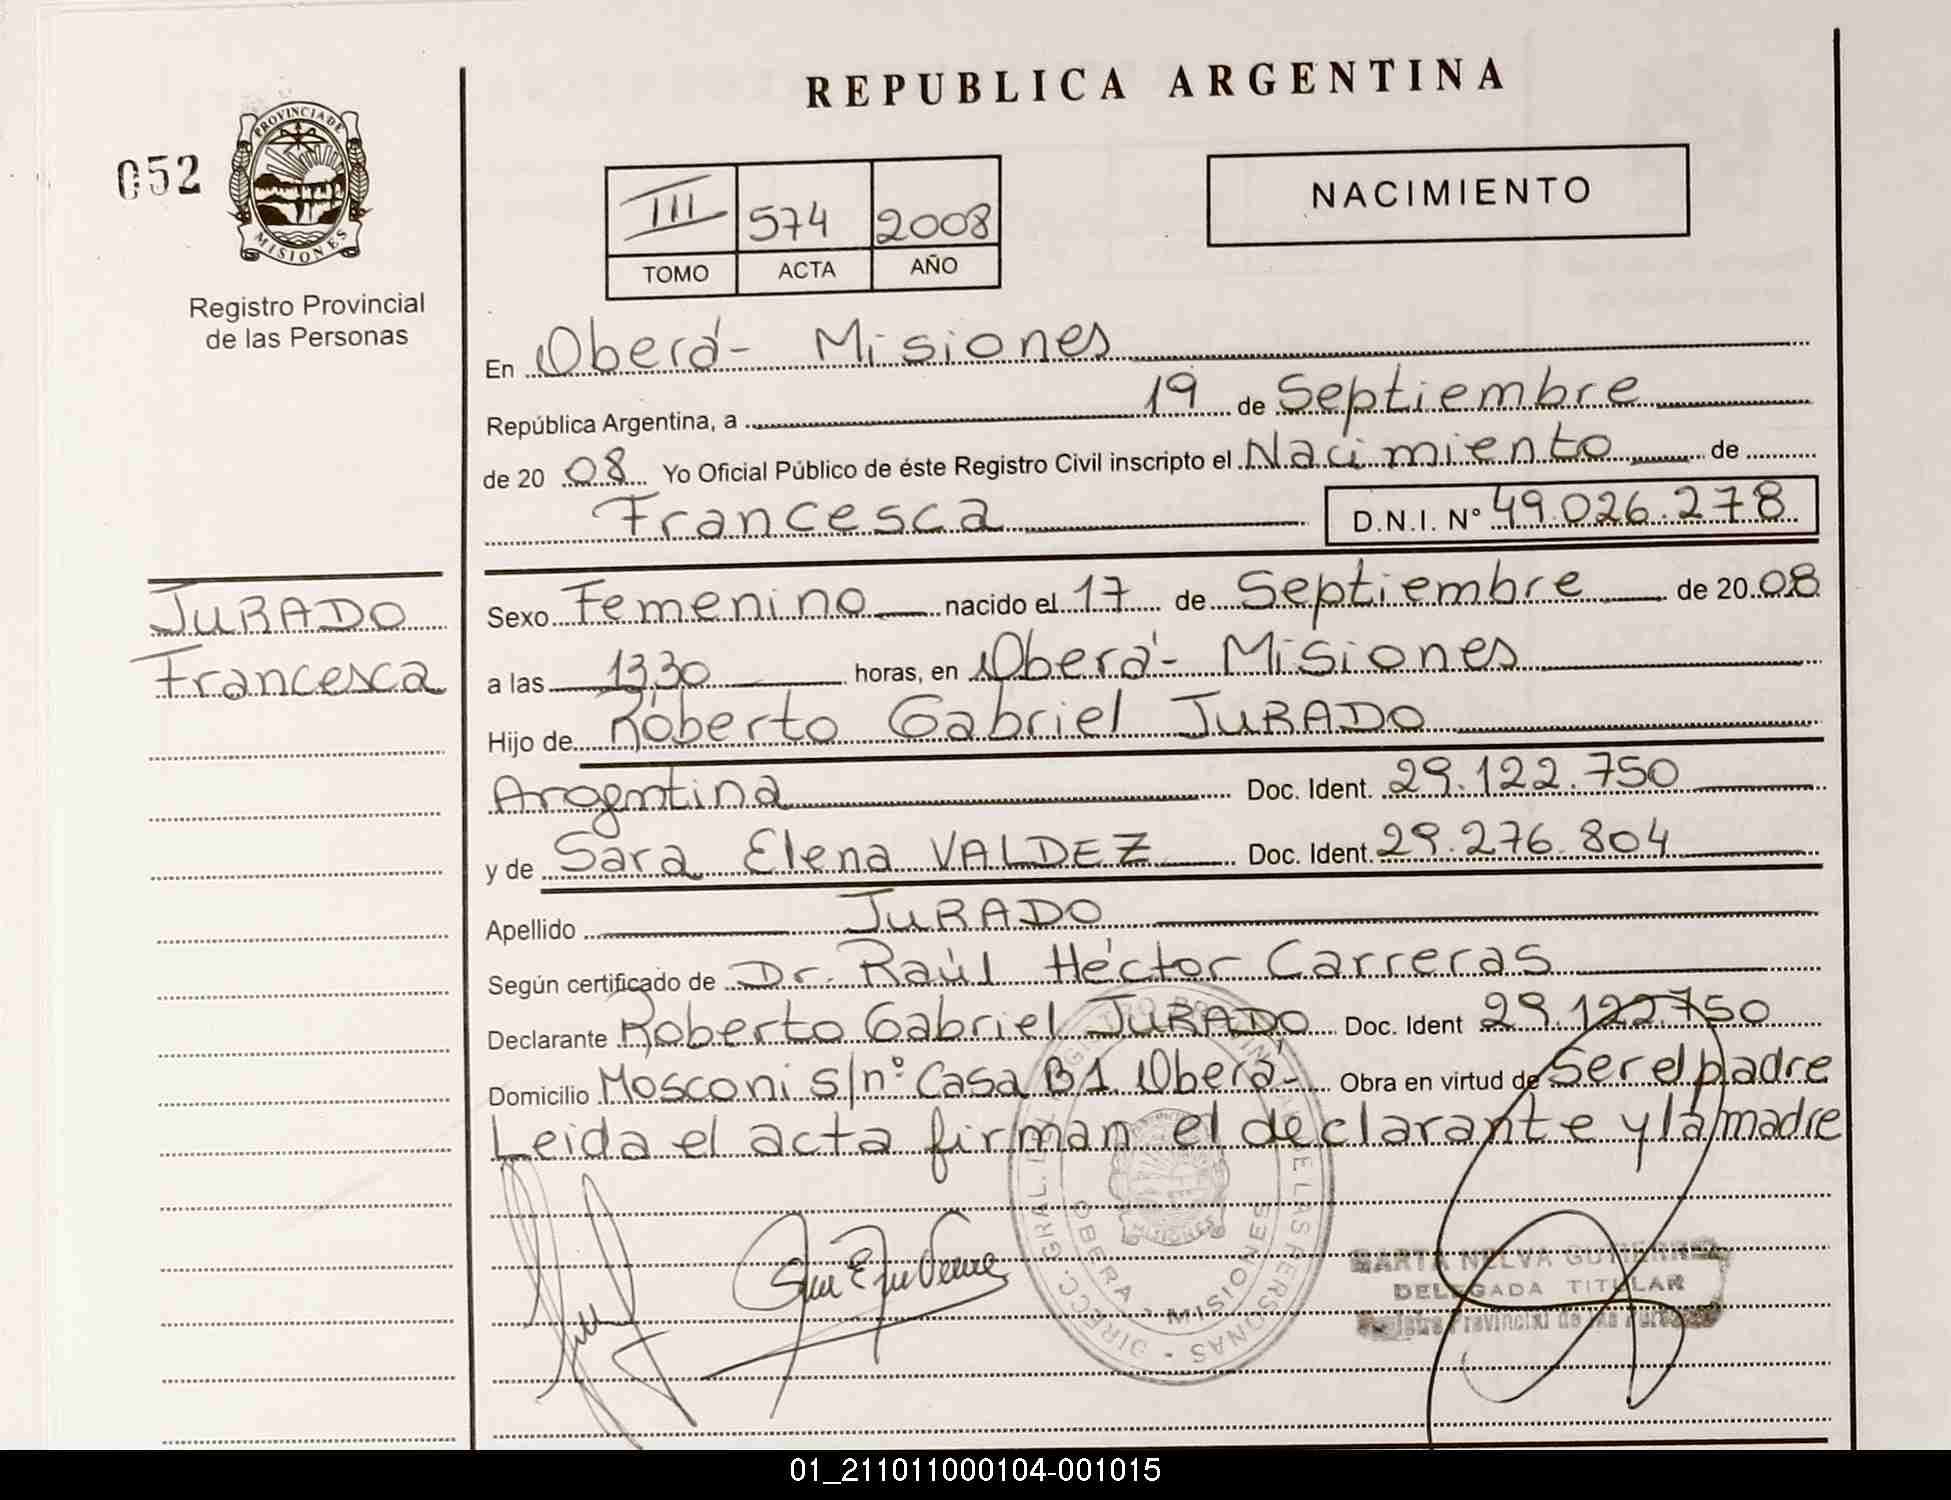 REPUBLICA ARGENTINA
052
PROVINCIA DE
MISIONES
Registro Provincial
de las Personas
III 574 2008
TOMO ACTA AÑO
NACIMIENTO
En Oberá- Misiones
República Argentina, a 19 de Septiembre
de 20 08 Yo Oficial Público de éste Registro Civil inscripto el Nacimiento de
Francesca D.N.I. Nº 49.026.278
JURADO
Francesca
Sexo Femenino nacido el 17 de Septiembre de 20 08
a las 13,30 horas, en Oberá- Misiones
Hijo de Roberto Gabriel JURADO
Argentina Doc. Ident. 29.122.750
y de Sara Elena VALDEZ Doc. Ident. 29.276.804
Apellido JURADO
Según certificado de Dr. Raúl Héctor Carreras
Declarante Roberto Gabriel JURADO Doc. Ident 29.122.750
Domicilio Mosconi s/nº Casa B1 Oberá- Obra en virtud de Ser el padre
Leida el acta firman el declarante y la madre
DIRECC. GRAL. DE LAS PERSONAS
OBERA - MISIONES
MARTA NELVA
DELEGADA TITULAR
Registro Provincial de las
01_211011000104-001015